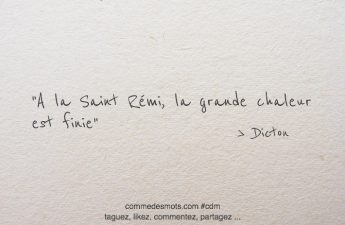 "A la Saint Rémi, la grande chaleur
est finie"
> Dicton
commedesmots.com #cdm
taguez, likez, commentez, partagez ...